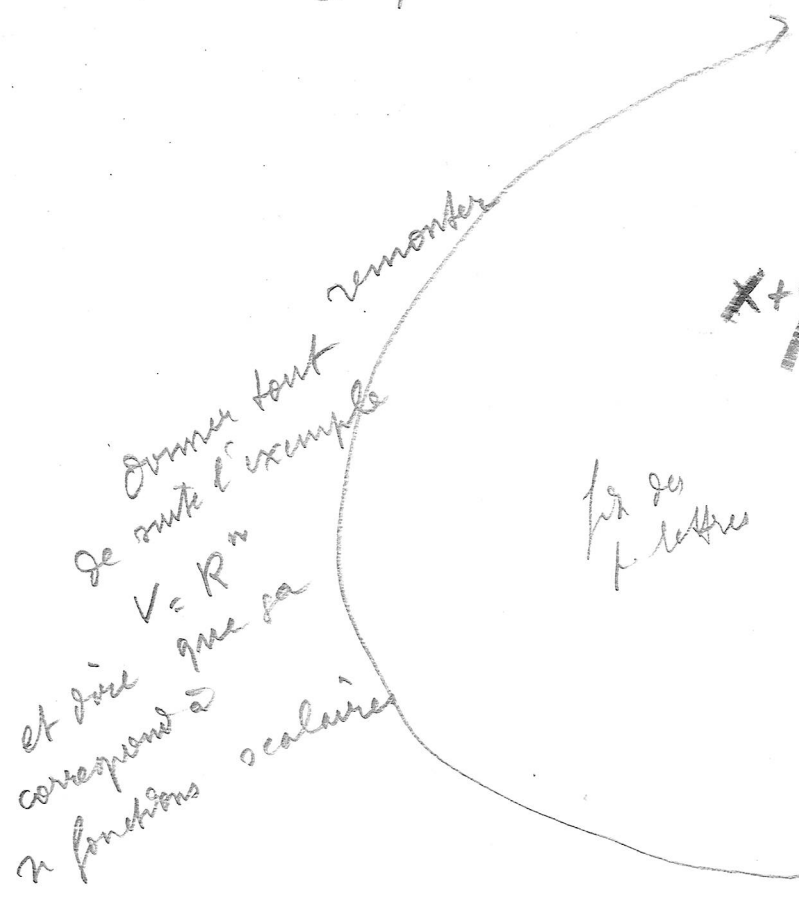 remonter
donner tout
de suite l'exemple
V = R^n
et dire que ça
correspond à
n fonctions scalaires
X +
des
p. lettres